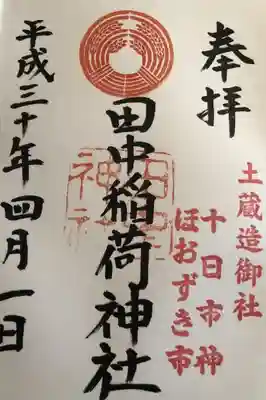 奉拝
土蔵造御社
十日市神
ほおずき市
田中稲荷神社
平成三十年四月一日